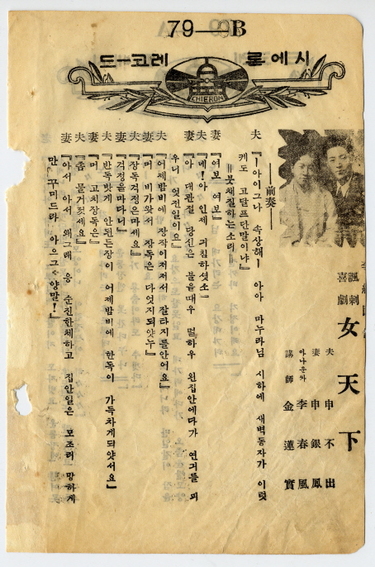 79—B
시에론 레코-드
CHIERON
諷刺
喜劇 女天下
夫 申不出
妻 申銀鳳
아나운서 李春風
講師 金蓮實
——前奏——
夫 『—아이그나 속상해— 아아 마누라님 시하에 새벽동자가 이럿
케도 고달프단말이냐』
=붓채질하는소리=
妻 『여보 여보』
夫 『네! 아 인제 긔침하섯소—
妻 『아 대관절 당신은 불을때우 멀하우 왼집안에다가 연긔를 피
우니 엇전일이요』
夫 『어제밤비에 장작이저저서 잘타지를안어요』
妻 『머 비가와서 장독은 다엇지되얏누』
夫 『장독걱정은마세요』
妻 『걱정을마다니』
夫 『반독밧게 안된든장이 어제밤비에 한독이 가득차게되얏서요』
妻 『머 고치장독은』
夫 『좀 물거젓세요』
妻 『아서 아서 왜그래 응 순진한체하고 집안일은 모조리 망하게
만 꾸미드라 아으그 양말!』